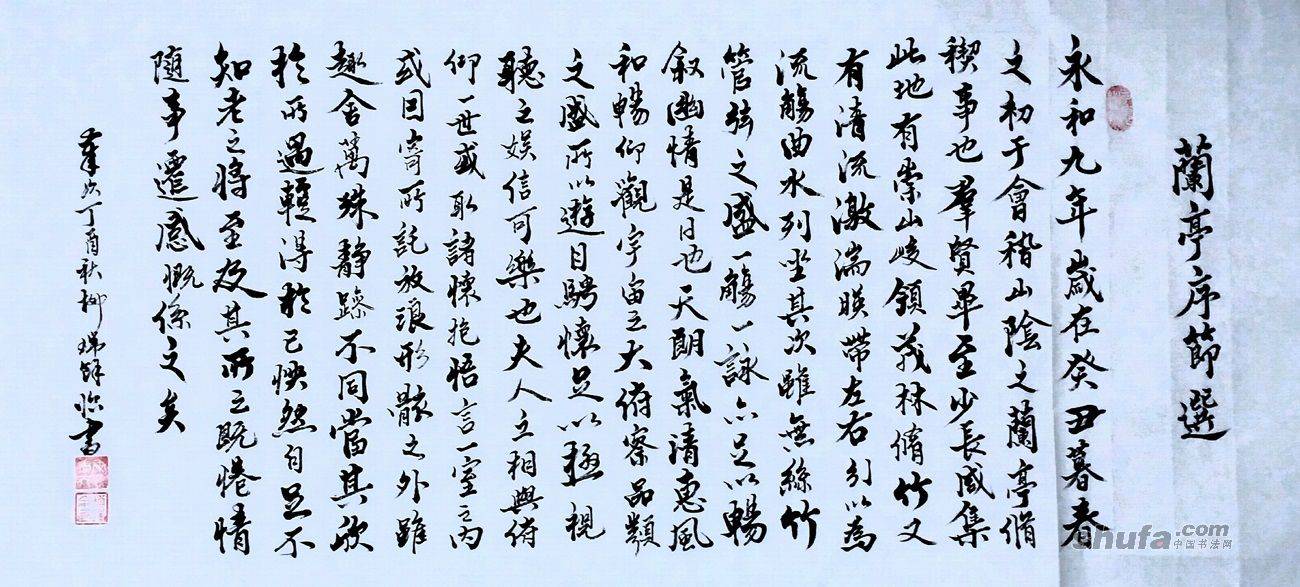 蘭亭序節選
永和九年歲在癸丑暮春
之初于會稽山陰之蘭亭脩
禊事也羣賢畢至少長咸集
此地有崇山峻領茂林脩竹又
有清流激湍暎帶左右引以為
流觴曲水列坐其次雖無絲竹
管弦之盛一觴一詠亦足以暢
叙幽情是日也天朗氣清惠風
和暢仰觀宇宙之大俯察品類
之盛所以遊目騁懷足以極視
聽之娛信可樂也夫人之相與俯
仰一世或取諸懷抱悟言一室之內
或因寄所託放浪形骸之外雖
趣舍萬殊靜躁不同當其欣
於所遇輙得於己怏然自足不
知老之將至及其所之既惓情
隨事遷感慨係之矣
丁酉秋柳臨書
shufa.com
中国书法网